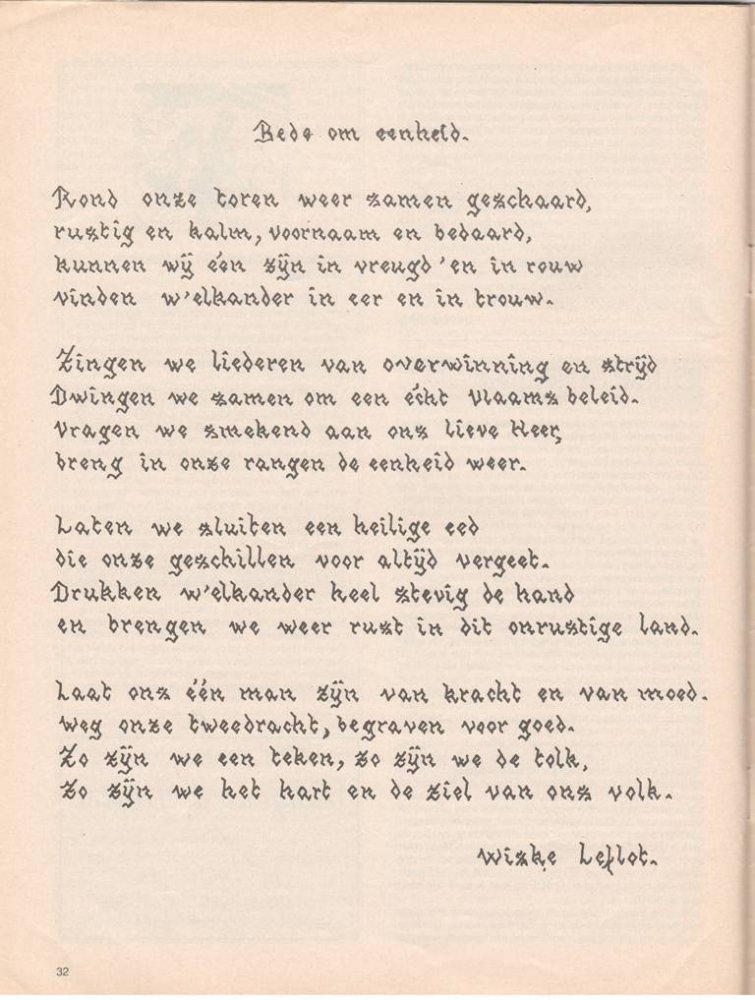 Bede om eenheid.
Rond onze toren weer samen geschaard,
rustig en kalm, voornaam en bedaard,
kunnen wij één zijn in vreugd' en in rouw
vinden w'elkander in eer en in trouw.
Zingen we liederen van overwinning en strijd
Dwingen we samen om een écht Vlaams beleid.
Vragen we smekend aan ons lieve Heer,
breng in onze rangen de eenheid weer.
Laten we sluiten een heilige eed
die onze geschillen voor altijd vergeet.
Drukken w'elkander heel stevig de hand
en brengen we weer rust in dit onrustige land.
Laat ons één man zijn van kracht en van moed.
Weg onze tweedracht, begraven voor goed.
Zo zijn we een teken, zo zijn we de tolk,
zo zijn we het hart en de ziel van ons volk.
Wiske Leflot.
32